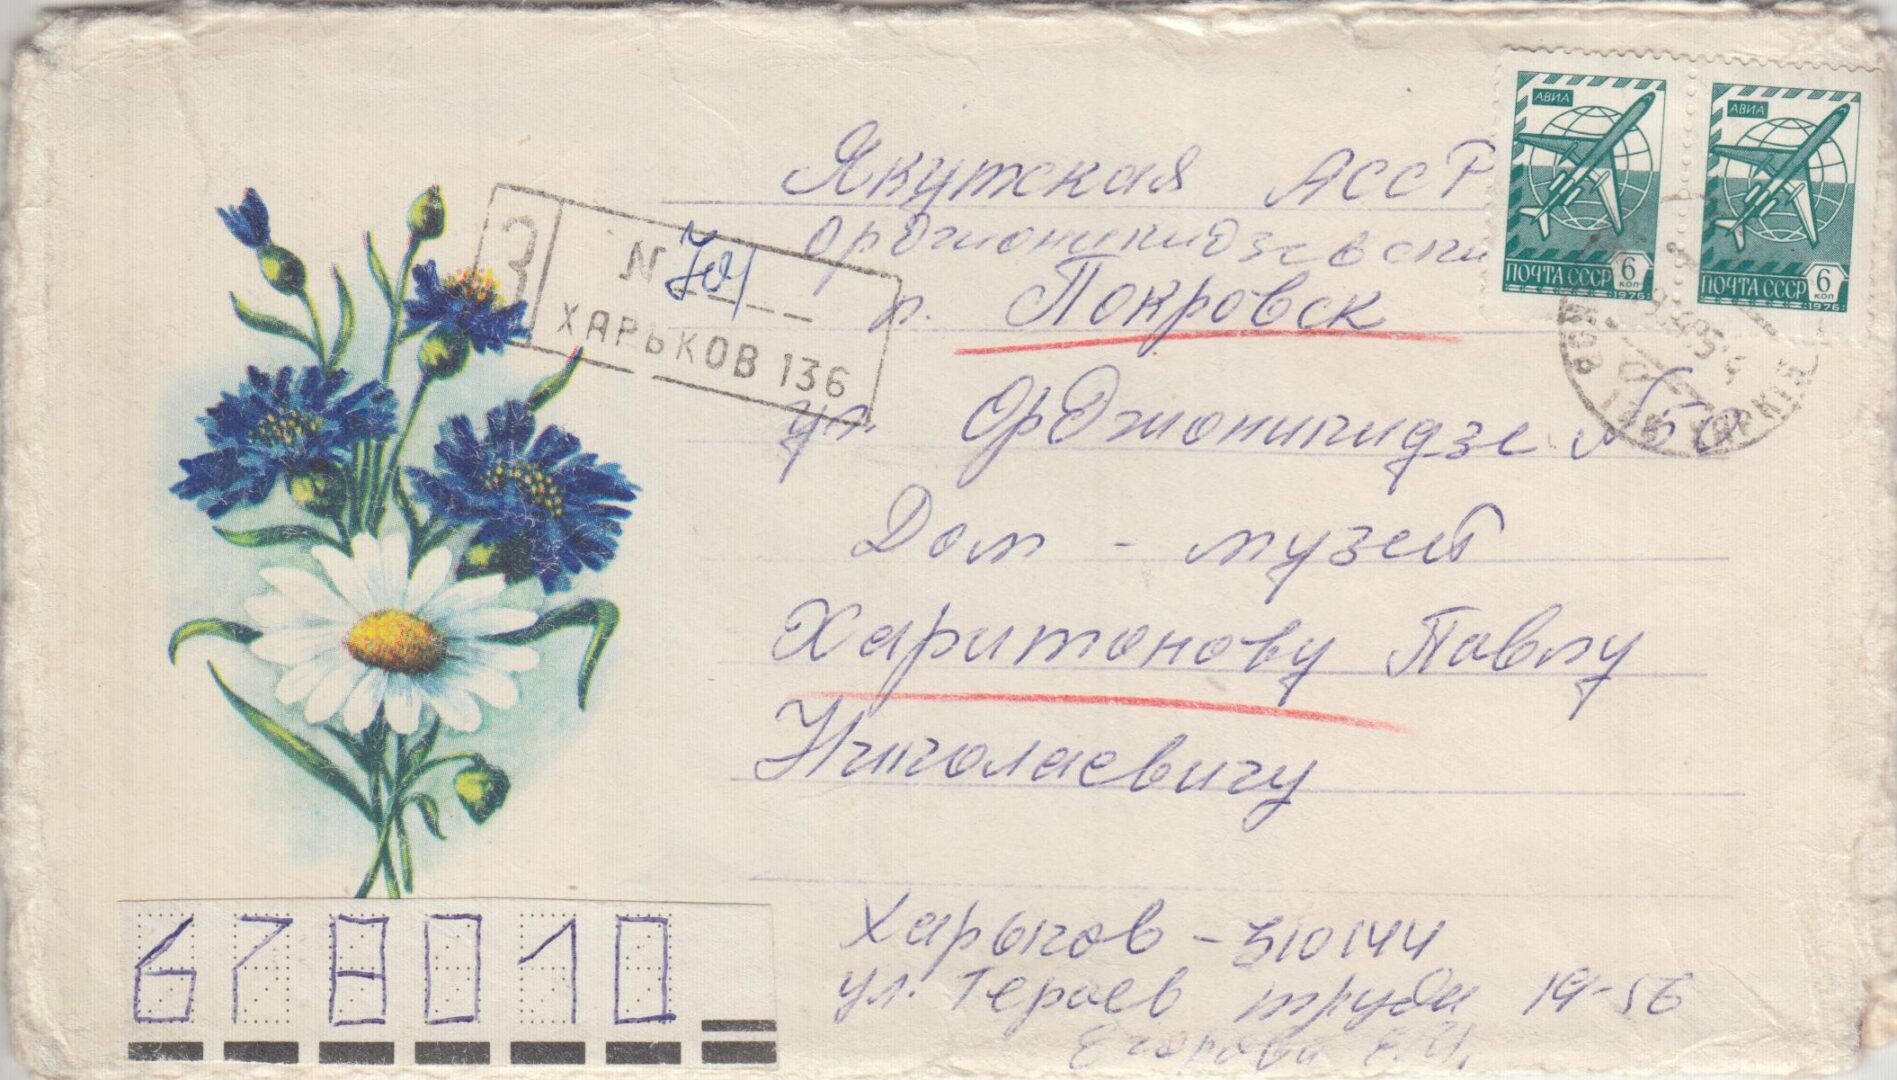 Якутская АССР
Орджоникидзевски
п. Покровск
ул. Орджоникидзе
Дом - музей
Харитонову Павлу
Николаевичу
З
N
ХАРЬКОВ 136
АВИА
ПОЧТА СССР 6 КОП
1976
АВИА
ПОЧТА СССР 6 КОП
1976
678010
Харьков - 310144
ул. Героев труда 19-56
Егорова